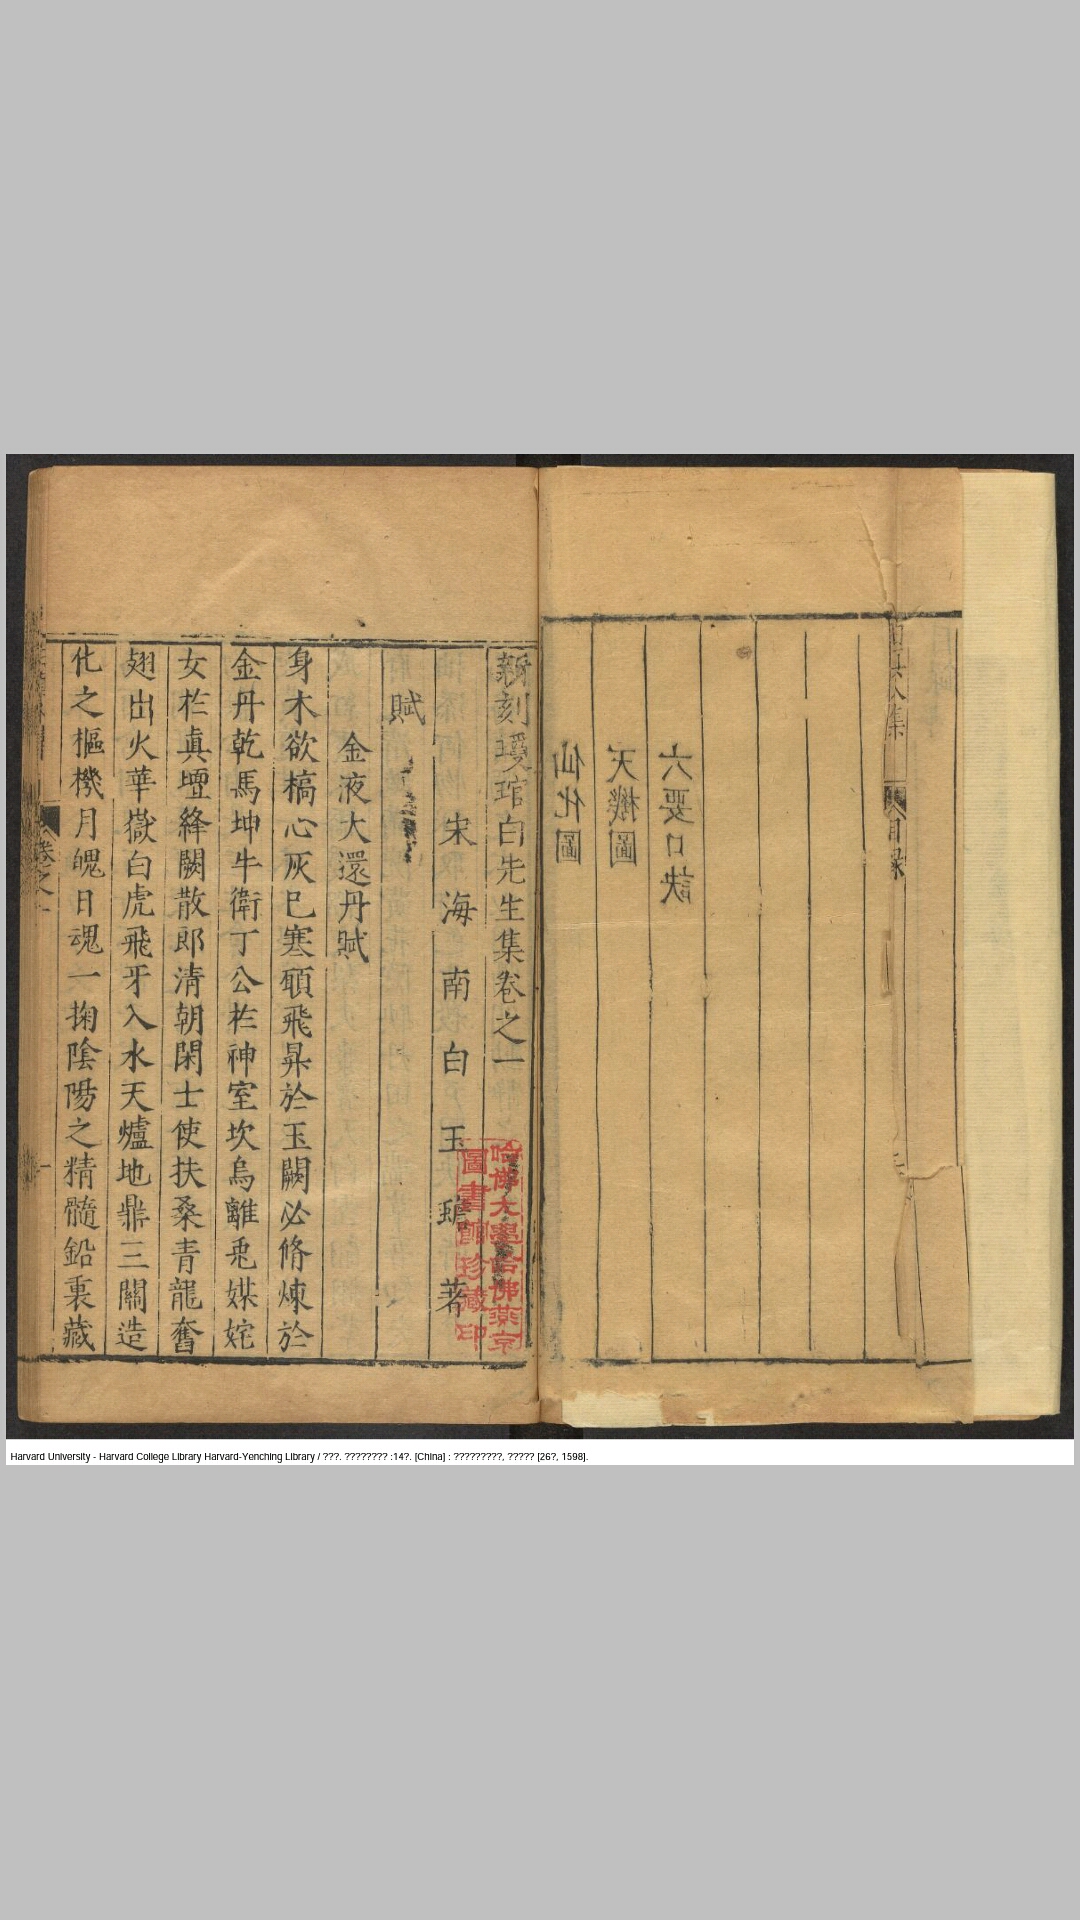 六要口訣
天機圖
仙化圖
目録
新刻瓊琯白先生集卷之一
宋海南白玉蟾著
賦
金液大還丹賦
身木欲槁心灰已寒碩飛昇於玉闕必脩煉於
金丹乾馬坤牛衛丁公於神室坎烏離兎媒姹
女於眞壇絳闕散郎清朝閑士使扶桑青龍奮
翅出火華嶽白虎飛牙入水天爐地鼎三關造
化之樞機月魄日魂一掬陰陽之精髓鉛裏藏
卷之一
哈佛大學哈佛燕京
圖書館珍藏印
Harvard University - Harvard College Library Harvard-Yenching Library / ???. ???????? :14?. [China] : ?????????, ????? [26?, 1598].